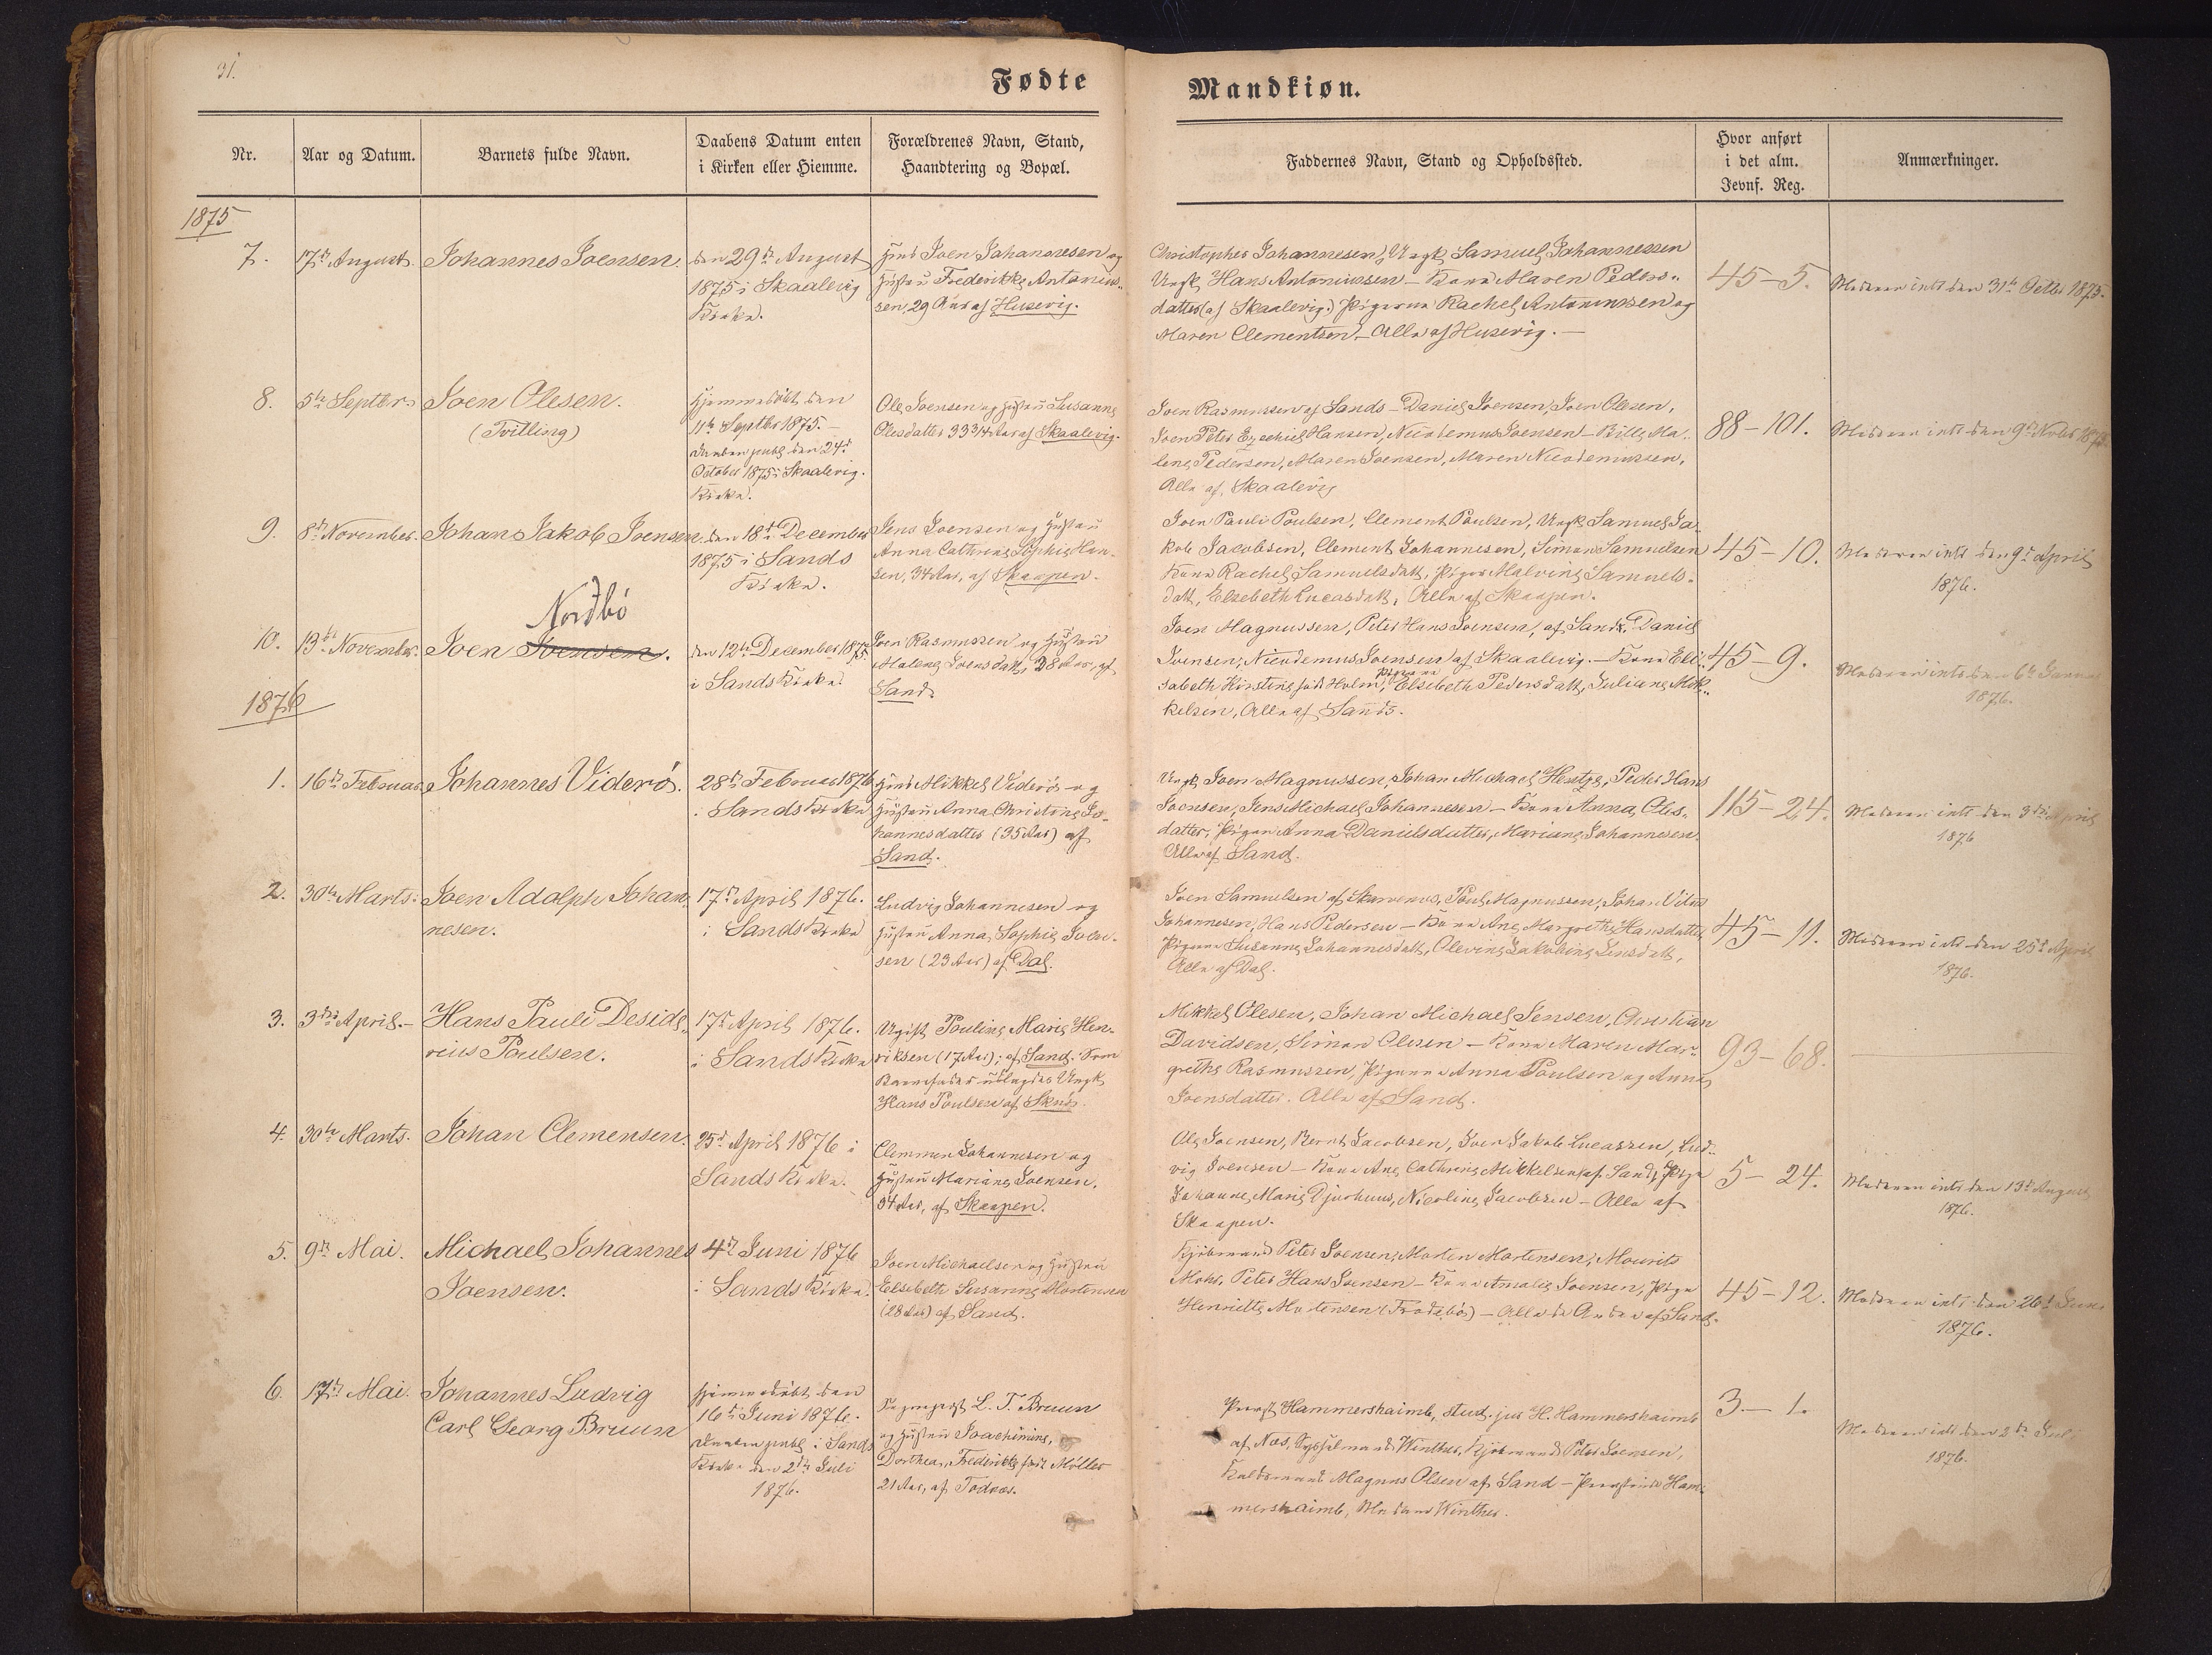 31.
Fødte
Mandkiøn.
Nr.
Aar og Datum.
Barnets fulde Navn.
Daabens Datum enten
i Kirken eller Hiemme.
Forældrenes Navn, Stand,
Haandtering og Bopæl.
Faddernes Navn, Stand og Opholdssted.
Hvor anført
i det alm.
Jevnf. Reg.
Anmærkninger.
1875
7.
17de August.
Johannes Joensen.
den 29de August
1875 i Skaalevig
Kirke.
Joen Johannesen og
Hustru Frederikke Antonius-
sen, 29 Aar af Husevig.
Christopher Johannesen, Ungk. Samuel Johannessen
Ungk. Hans Antoniussen – Kone Maren Peders-
datter (af Skaalevig.) Pigerne Rachel Antoniussen og
Maren Clementsen. – Alle af Husevig. –
45 – 5.
Moderen intr. den 31te Octbr 1875.
8.
5te Septbr.
Joen Olesen.
(Tvilling)
Hjemmedøbt den
11te Septbr 1875. –
Daaben publ. den 24de
October 1875 i Skaalevig
Kirke.
Ole Joensen og Hustru Susanne
Olesdatter 33 3/4 Aar af Skaalevig.
Joen Rasmussen af Sands – Daniel Joensen, Joen Olesen,
Joen Peter Ezechiel Hansen, Nicodemus Joensen – Bille Ma-
lene Pedersen, Maren Joensen, Maren Nicodemussen,
Alle af Skaalevig
88 – 101.
Moderen intr. den 9de Novbr 1875.
9.
8de November.
Johan Jakob Joensen.
den 18de December
1875 i Sands
Kirke.
Jens Joensen og Hustru
Anna Cathrine Sophie Han-
sen, 34 Aar, af Skaapen.
Joen Pauli Poulsen, Clement Poulsen, Ungk. Samuel Ja-
kob Jacobsen, Clement Johannesen, Simon Samuelsen
Kone Rachel Samuelsdatt, Piger Malvine Samuels-
datt, Elsebeth Lucasdatt, Alle af Skaapen.
45 – 10.
Moderen intr. den 9de April
1876.
Nordbö
10.
13de November.
Joen Joensen.
den 12te December 1875
i Sands Kirke.
Joen Rasmussen og Hustru
Malene Joensdatt, 28 Aar, af
Sand.
Joen Magnussen, Peter Hans Joensen, af Sand, Daniel
Joensen, Nicodemus Joensen af Skaalevig. – Kone Eli-
sabeth Kirstine född Holm, Pigerne Elsebeth Pedersdatt, Juliane Mik-
kelsen, Alle af Sands.
45 – 9.
Moderen intr. den 6te Januar
1876.
1876
1.
16de Februar
Johannes Viderö.
28de Februar 1876
i Sands Kirke
Mikkel Viderö og
Hustru Anna Christine Jo-
hannesdatter (35 Aar) af
Sand.
Ungk. Joen Magnussen, Johan Michael Hentze, Peder Hans
Joensen, Jens Michael Johannesen – Kone Anna Oles-
datter, Piger Anna Danielsdatter, Mariane Johannesen.
Alle af Sand.
115 – 24.
Moderen intr. den 3die April
1876
2.
30te Marts.
Joen Adolph Johan-
nesen.
17de April 1876.
i Sands Kirke
Ludvig Johannesen og
Hustru Anna Sophie Joen-
sen (23 Aar) af Dal.
Joen Samuelsen af Skarvenes, Poul Magnussen, Johan Vitus
Johannesen, Hans Pedersen – Kone Ane Margrethe Hansdatter
Pigerne Susanne Johannesdatt, Olevine Jakobine Jensdatt,
Alle af Dal.
45 – 11.
Moderen intr. den 25de April
1876.
3.
3die April. –
Hans Pauli Deside-
rius Poulsen.
17de April 1876.
i Sands Kirke
Ugift Pouline Marie Hen-
riksen (17 Aar), af Sand. Som
Barnefader udlagdes Ungk.
Hans Poulsen af
Mikkel Olesen, Johan Michael Jensen, Christian
Davidsen, Simon Olesen – Kone Maren Mar-
grethe Rasmussen, Pigerne Anna Poulsen og Anna
Joensdatter. Alle af Sand.
93 – 68.
4.
30te Marts.
Johan Clemensen.
25de April 1876 i
Sands Kirke.
Clemmen Johannesen og
Hustru Mariane Joensen,
34 Aar, af Skaapen.
Ole Joensen, Bernt Jacobsen, Joen Jakob Lucassen, Lud-
vig Joensen – Kone Ane Cathrine Mikkelsen af Sand, Pige
Johanne Marie Djurhuus, Nicoline Jacobsen – Alle af
Skaapen.
5 – 24.
Moderen intr. den 13de August
1876.
5.
9de Mai.
Michael Johannes
Joensen.
4de Juni 1876
i Sands Kirke.
Joen Michaelsen og Hustru
Elsebeth Susanne Mortensen
(28 Aar) af Sand.
Kjöbmand Peter Joensen, Morten Mortensen, Mourits
Mohr, Peter Hans Joensen – Kone Amalie Joensen, Pige
Henriette Mortensen (Frodebö) – Alle de Andre af Sand.
45 – 12.
Moderen intr. den 26de Juni
1876.
6.
17de Mai.
Johannes Ludvig
Carl Georg Bruun
Hjemmedöbt den
16de Juni 1876.
Daaben publ. i Sands
Kirke den 2den Juli
1876.
Sognepræst L. T. Bruun
og Hustru Joachimine,
Dorthea, Frederikke född Möller
21 Aar, af Todnæs.
Provst Hammershaimb, stud. jur. H. Hammershaimb
af Næs, Sysselmand Winther, Kjöbmand Peter Joensen,
Magnus Olsen af Sand – Provstinde Ham-
mershaimb, Madame Winther.
3. – 1.
Moderen intr. den 2den Juli
1876.